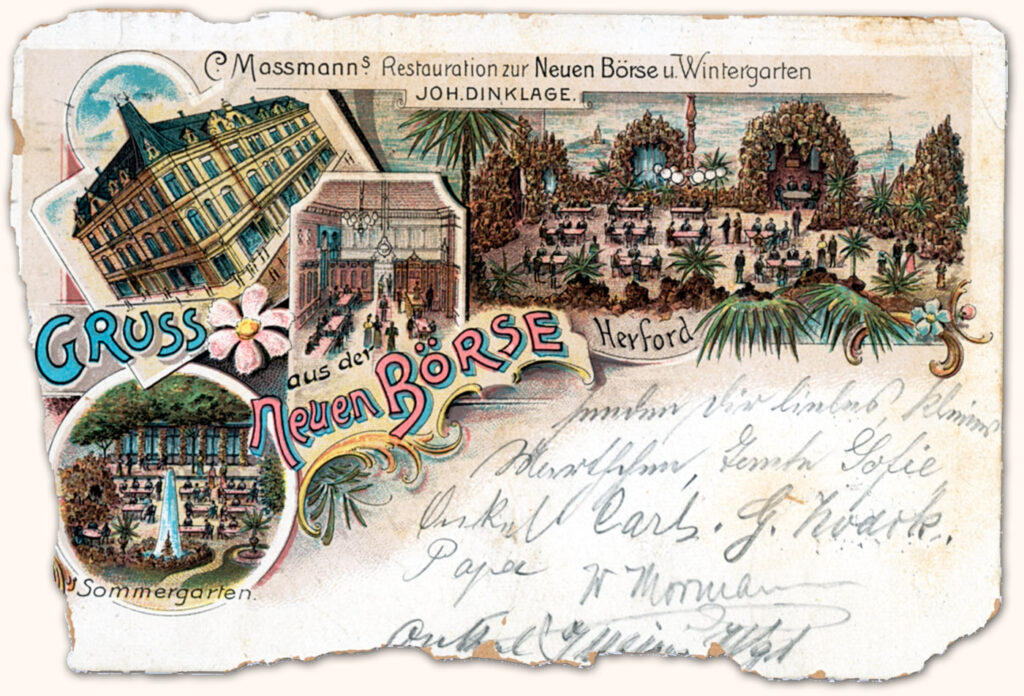 C. Massmann's Restauration zur Neuen Börse u. Wintergarten
JOH. DINKLAGE.
GRUSS
aus der
Neuen BÖRSE
Herford
Sommergarten.
senden Dir liebes kleines
Tante Sofie
Onkel Carl.
Papa W Mormann
Onkel